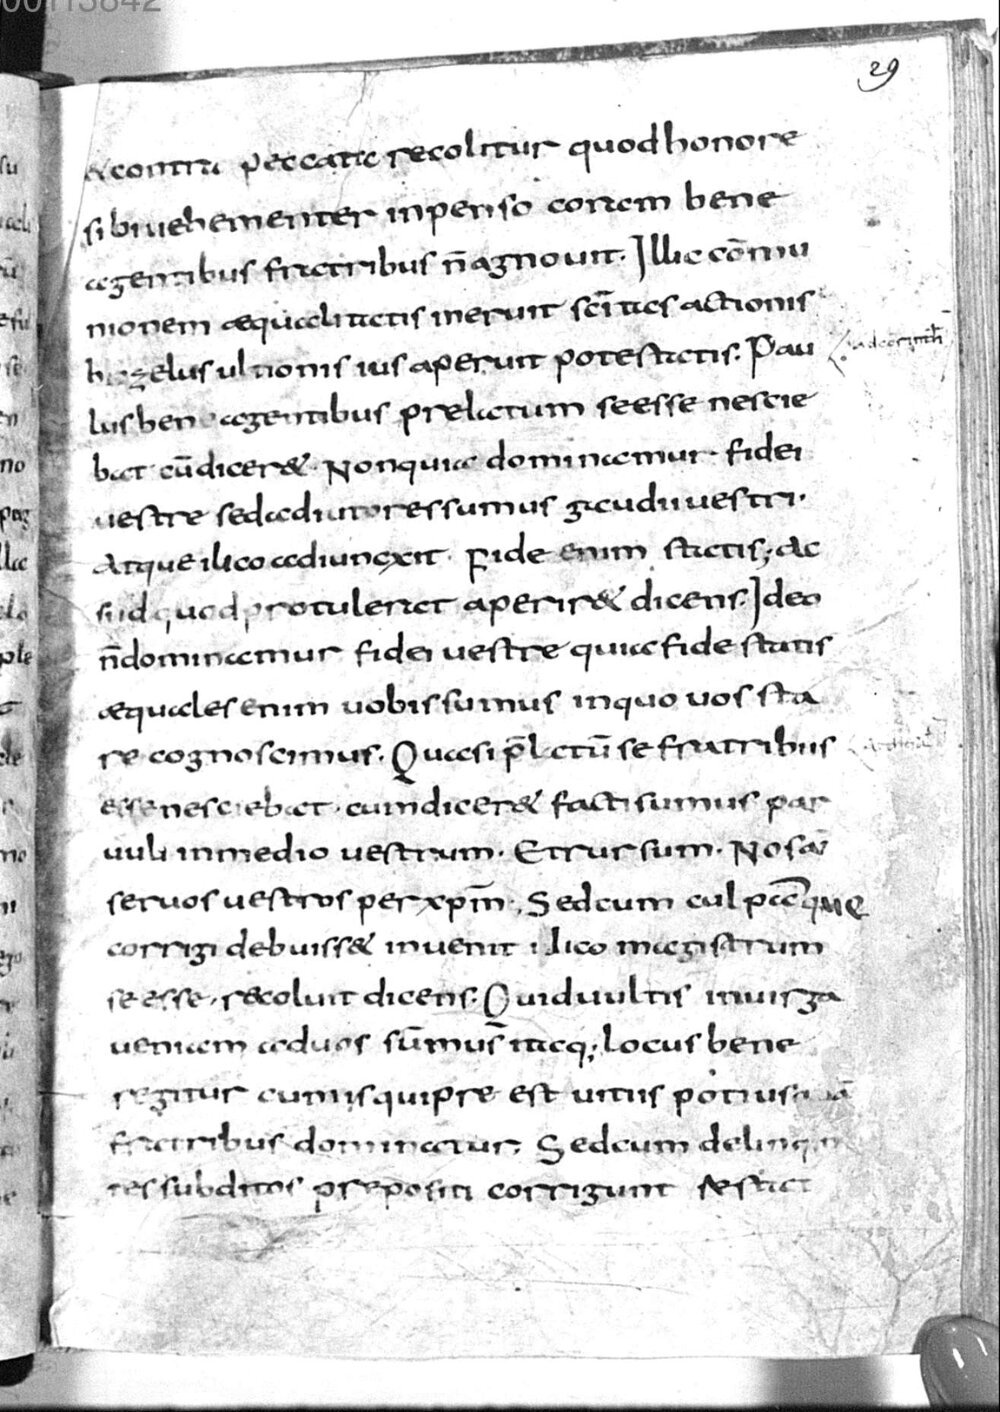 00113842
29
&contra peccata recolitur quod honore
sibi uehementer inpenso coram bene
agentibus fratribus n̄ agnouit. Illic cōmu
nionem aequalitatis inerunt sc̄itas actionis
zelus ultionis ius aperuit potestatis. Pau
lus bene agentibus prelatum se esse nescie
bat cū dicer&. Non quia dominamur fidei
uestre sed adiutores sumus gaudii uestri.
Atque ilico adiuncxit. Fide enim statis; Ac
si id quod protulerat aperir& dicens. Ideo
n̄ dominamur fidei uestre quia fide statis
aequales enim uobis sumus in quo uos sta
re cognoscimus. Quasi p̄latū se fratribus
esse nesciebat. cum dicer& facti sumus par
uuli in medio uestrum. Et rursum. Nos aū
seruos uestros per xp̄m; Sed cum culpāque
corrigi debuiss& inuenit ilico magistrum
se esse. recoluit dicens. Quid uultis in uirga
ueniam ad uos sūmus̄ itaq; locus bene
regitur cum is qui pre est uitiis potius quā
fratribus dominatur; Sed cum delinquen
tes subditos prepositi corrigunt restat
ad corinth